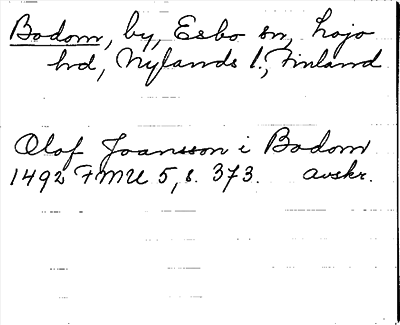 Bodom, by, Esbo sn, Lojo
hd, Nylands l., Finland
Olof Joansson i Bodom
1492 FMU 5, s. 373. avskr.